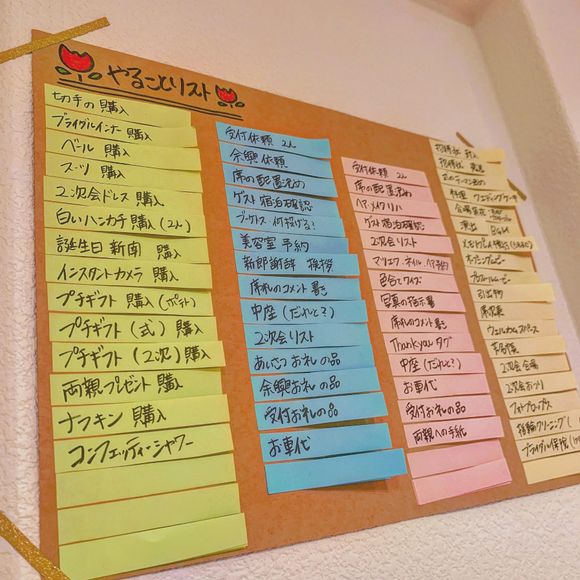 やることリスト
切手の購入
ブライダルインナー 購入
ベール 購入
スーツ 購入
2次会ドレス 購入
白いハンカチ 購入(2人)
誕生日新聞 購入
インスタントカメラ 購入
プチギフト 購入(ポスト)
プチギフト(式)購入
プチギフト(2次)購入
両親プレゼント 購入
ナフキン 購入
コンフェッティーシャワー
受付依頼 2人
余興依頼
席の配置決め
ゲスト宿泊確認
ブートス 何投げる?
美容室 予約
新郎謝辞 挨拶
席札のコメント書き
中座(だれと?)
2次会リスト
あいさつお礼の品
余興お礼の品
受付お礼の品
お車代
受付依頼 2人
席の配置決め
ヘア・メイクリハ
ゲスト宿泊確認
2次会リスト
マツエク・ネイル・ヘア予約
色合てクイズ
写真の指示書
席札のコメント書き
Thankyouタグ
中座(だれと?)
お車代
受付お礼の品
両親への手紙
招待状
招待状
料理 ウェディングケーキ
会場装花
演出 BGM
オープニングムービー
プロフィールムービー
引出物
席次表
ウェルカムスペース
芳名帳
2次会会場
2次会
フォトプロップス
指輪クリーニング
ブライダル保険